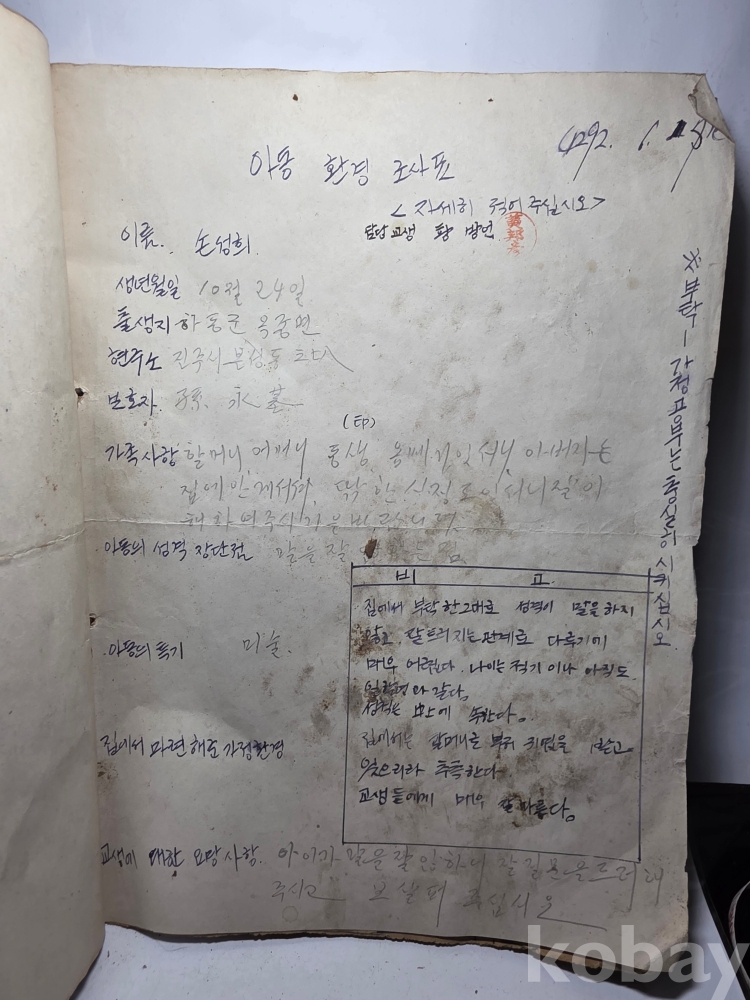 4292. 6.
아동 환경 조사표
< 자세히 적어 주십시오>
담당교생 황
이름. 손성희
생년월일 10월 24일
출생지 하동군 옥종면
현주소 진주시
보호자 孫 永
(印)
가족사항 할머니, 어머니 동생 아버지는
집에 안게서서 딱 한 도
아동의 성격 장단점 말을 잘
아동의 특기 미술
집에서 마련해 준 가정환경
교생에 대한 요망사항. 아이가 말을 잘 안하니 잘
주시고 보살펴 주십시오
비 고
집에서 부탁한 그대로 성격이 말을 하지
않고, 잘 관계로 다루기에
매우 어렵다. 나이는 적기 이나 아직도
같다.
성적은 속한다.
집에서는 할머니로 부터 귀염을 받고
있으리라 추측한다
교생들에게 매우 잘 따른다.
※ 부탁 - 가정공부는 충실히 시키십시오.
kobay